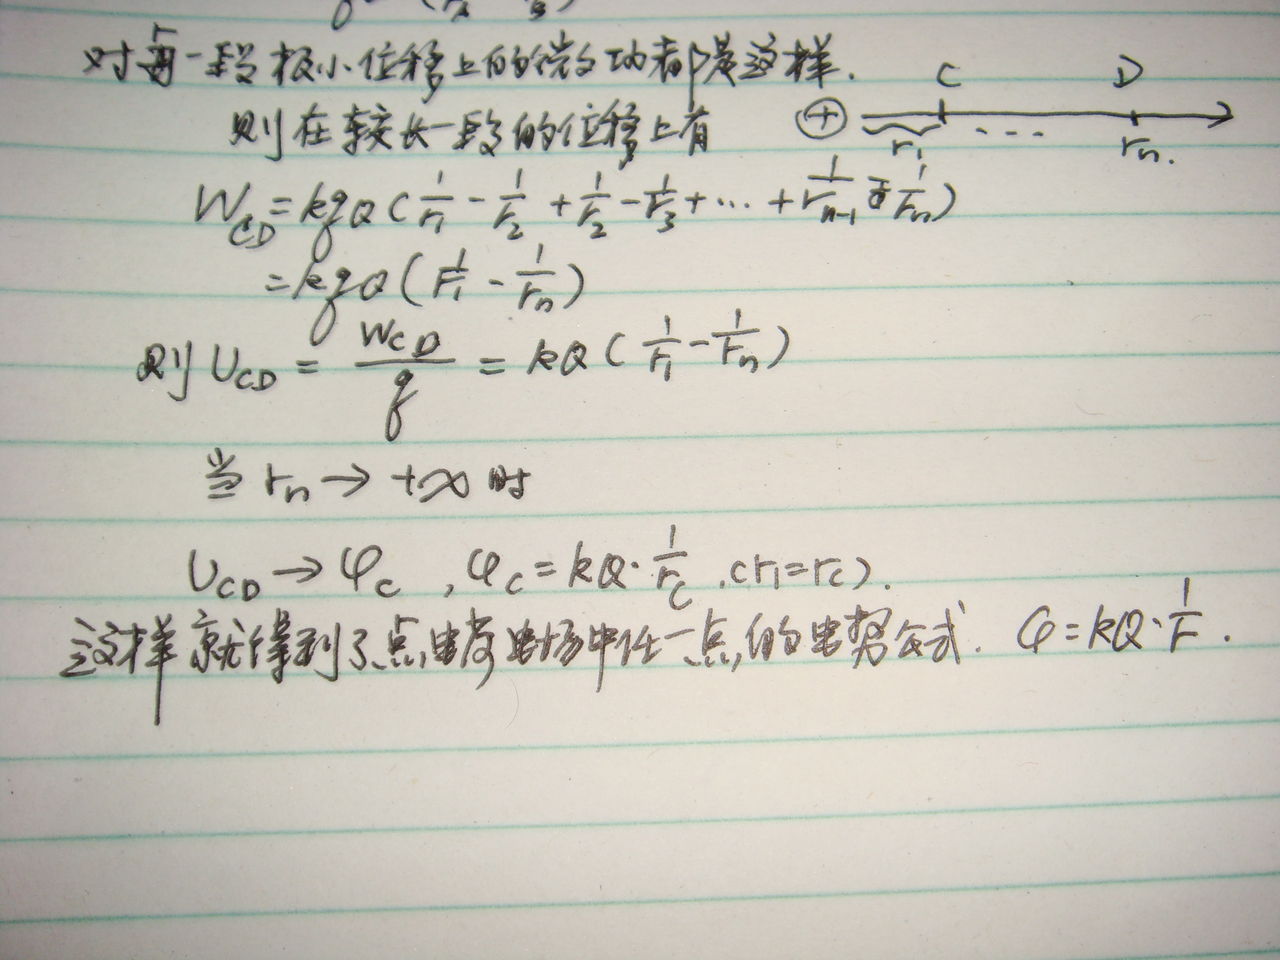 对每一段极小位移上的微功都是这样.
C D
则在较长一段的位移上有
+ r₁ ... rₙ.
W_CD = kqQ(1/r₁ - 1/r₂ + 1/r₂ - 1/r₃ + ... + 1/rₙ₋₁ - 1/rₙ)
= kqQ(1/r₁ - 1/rₙ)
则 U_CD = W_CD/q = kQ(1/r₁ - 1/rₙ)
当 rₙ → +∞ 时
U_CD → φ_C , φ_C = kQ·1/r_C .(r₁=r_C).
这样就得到了点电荷电场中任一点的电势公式. φ=kQ·1/r.